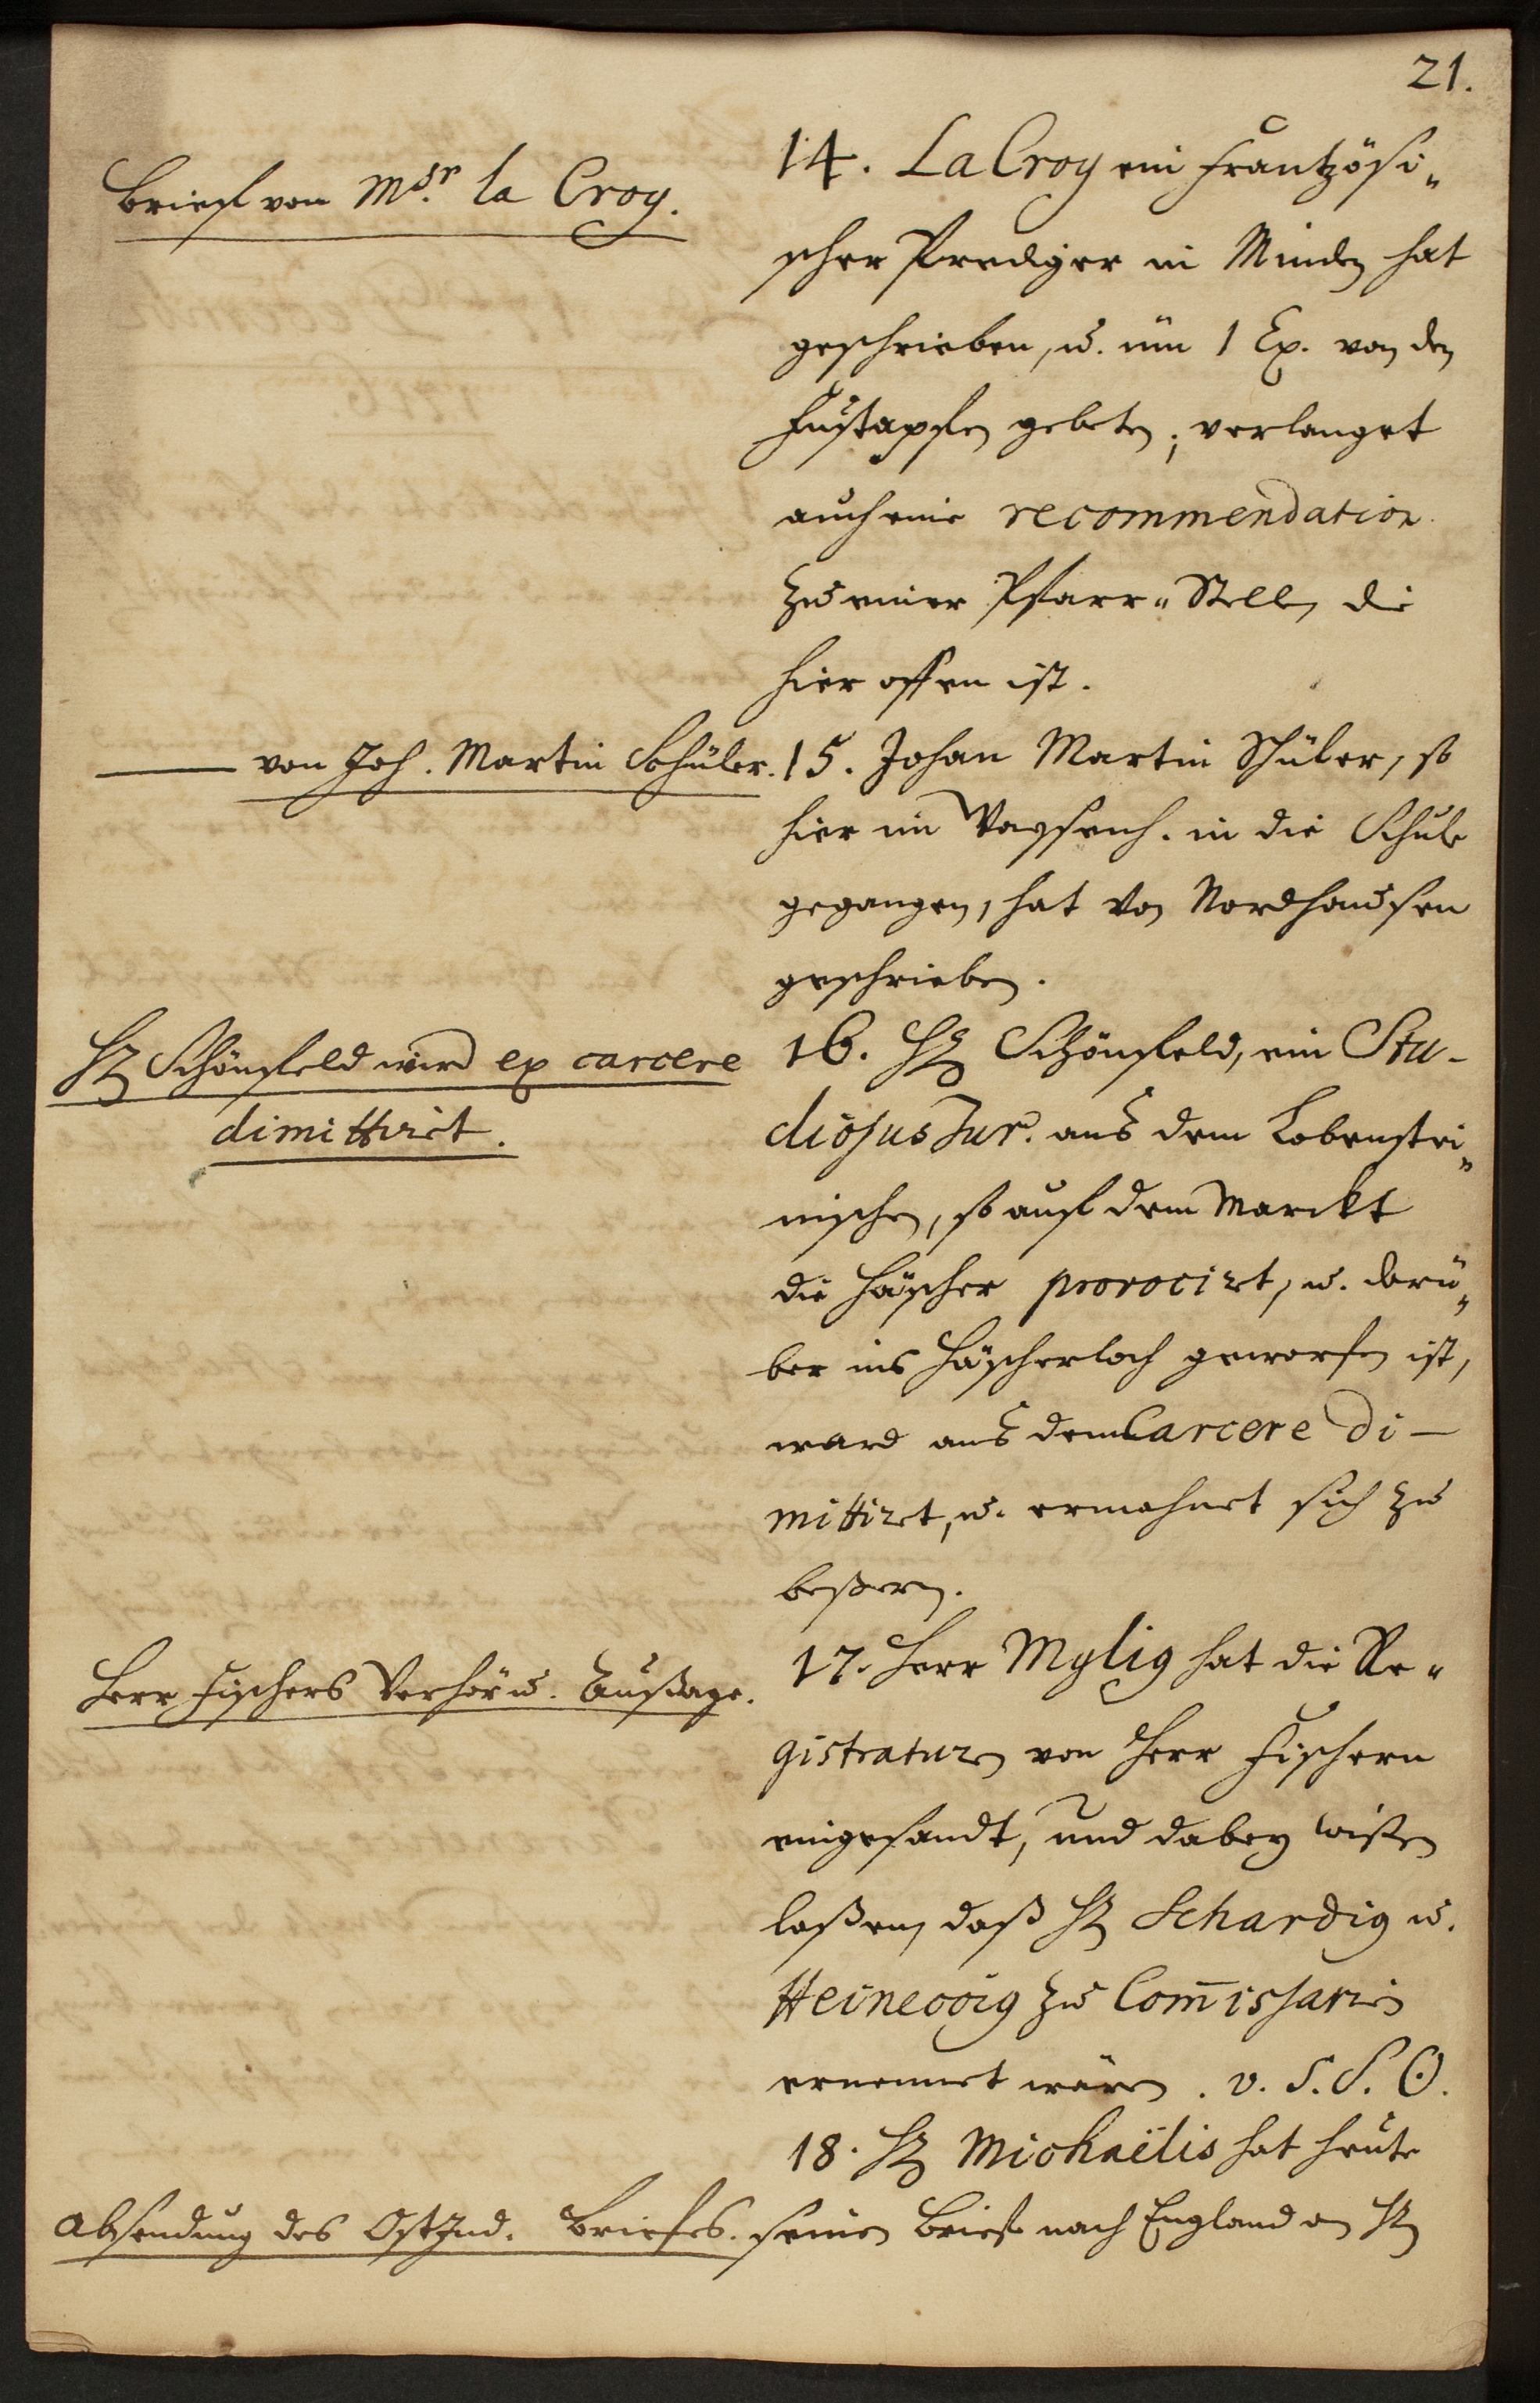 21.
Brieff von Msr. la Croy.
14. La Croy ein Frantzösi„
scher Prediger in Minden hat
geschrieben, u. üm 1 Ex. von den
Fußtapffen gebeten; verlanget
auch eine recommendation
zu einer Pfarr„Stelle, die
hier offen ist.
——— von Joh. Martin Schüler.
15. Johan Martin Schüler, so
hier im Waysenh. in die Schule
gegangen, hat von Nordhausen
geschrieben.
H. Schönfeld wird ex carcere
dimittirt.
16. H. Schönfeld, ein Stu-
diosus Jur. aus dem Lobenstei„
nischen, so auff dem Marckt
die Häscher provocirt, u. darü„
ber ins Häscherloch geworfen ist,
ward aus dem Carcere di-
mittiret, u. ermahnet sich zu
beßern.
Herr Fischers Verhör u. Außage.
17. Herr Mylig hat die Re„
gistratur von Herr Fischern
eingesandt, und dabey wißen
laßen, daß H. Schardig u.
Heineccig zu Com̄issarien
ernennet wären. v. S. S. O.
18. H. Michaëlis hat heute
Absendung des OstInd. Briefes.
seinen Brieff nach England an H.